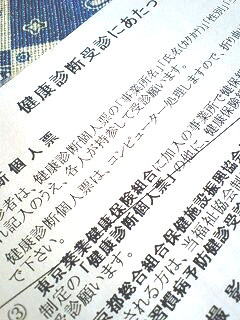 健康診断受診にあたっ
断個人票
者は、健康診断個人票の「事業所名」「氏名(カナ)」「性別」
記入のうえ、各人が持参して受診願います。
健康診断個人票は、コンピューター処理しますので、折り曲
下さい。
③
東京薬業健康保険組合に加入の事業所で健康保
制定の「健康診断個人票」の他に、
受診願います。
京都総合組合保健施設振興協会
される方は、当
習慣病予防健診受
撮影